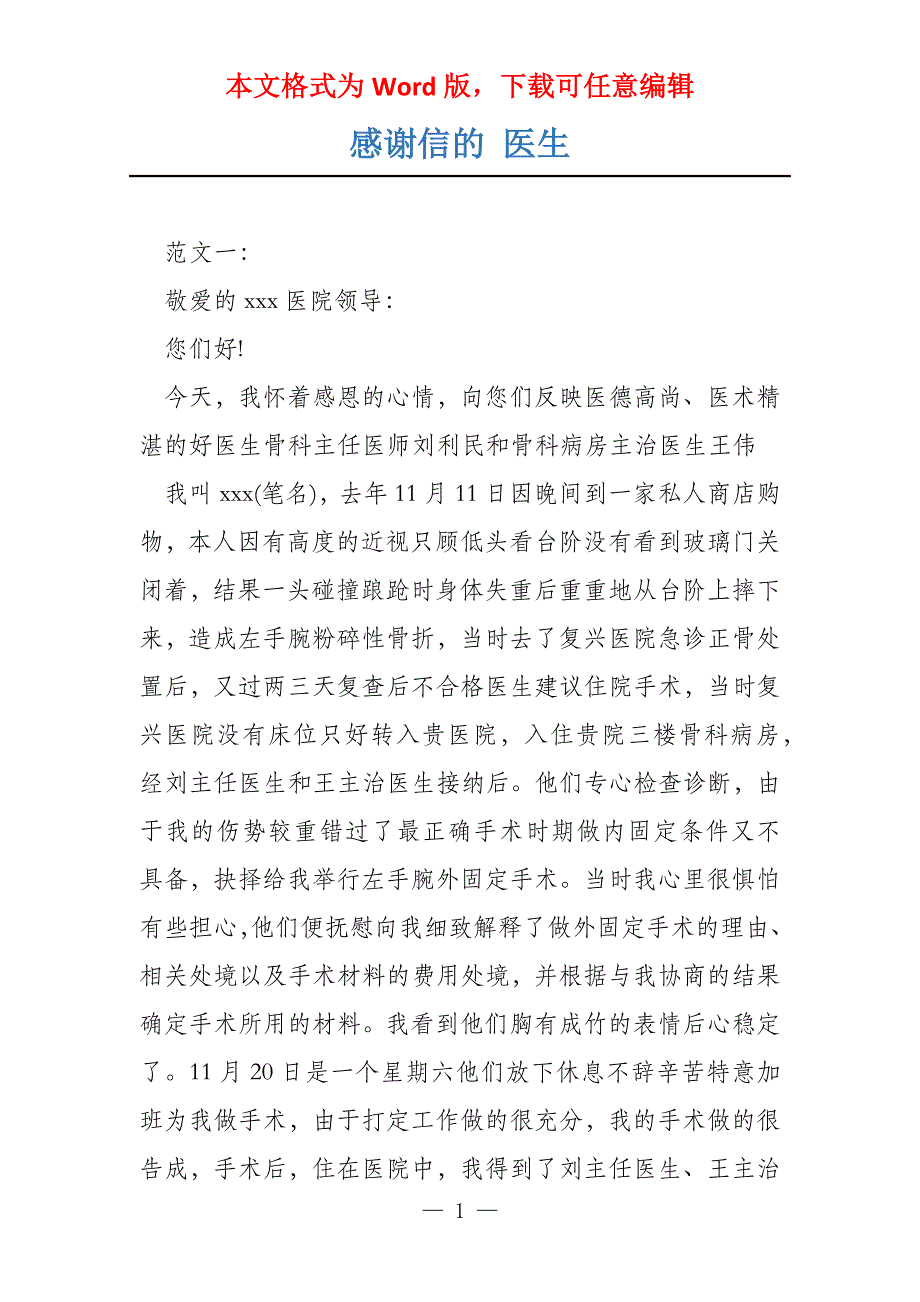 本文格式为 Word 版，下载可任意编辑
感谢信的 医生
范文一：
敬爱的 xxx 医院领导：
您们好!
今天，我怀着感恩的心情，向您们反映医德高尚、医术精
湛的好医生骨科主任医师刘利民和骨科病房主治医生王伟
我叫 xxx(笔名)，去年 11 月 11 日因晚间到一家私人商店购
物，本人因有高度的近视只顾低头看台阶没有看到玻璃门关
闭着，结果一头碰撞踉跄时身体失重后重重地从台阶上摔下
来，造成左手腕粉碎性骨折，当时去了复兴医院急诊正骨处
置后，又过两三天复查后不合格医生建议住院手术，当时复
兴医院没有床位只好转入贵医院，入住贵院三楼骨科病房，
经刘主任医生和王主治医生接纳后。他们专心检查诊断，由
于我的伤势较重错过了最正确手术时期做内固定条件又不
具备，抉择给我举行左手腕外固定手术。当时我心里很惧怕
有些担心,他们便抚慰向我细致解释了做外固定手术的理由、
相关处境以及手术材料的费用处境，并根据与我协商的结果
确定手术所用的材料。我看到他们胸有成竹的表情后心稳定
了。11 月 20 日是一个星期六他们放下休息不辞辛苦特意加
班为我做手术，由于打定工作做的很充分，我的手术做的很
告成，手术后，住在医院中，我得到了刘主任医生、王主治
— 1 —